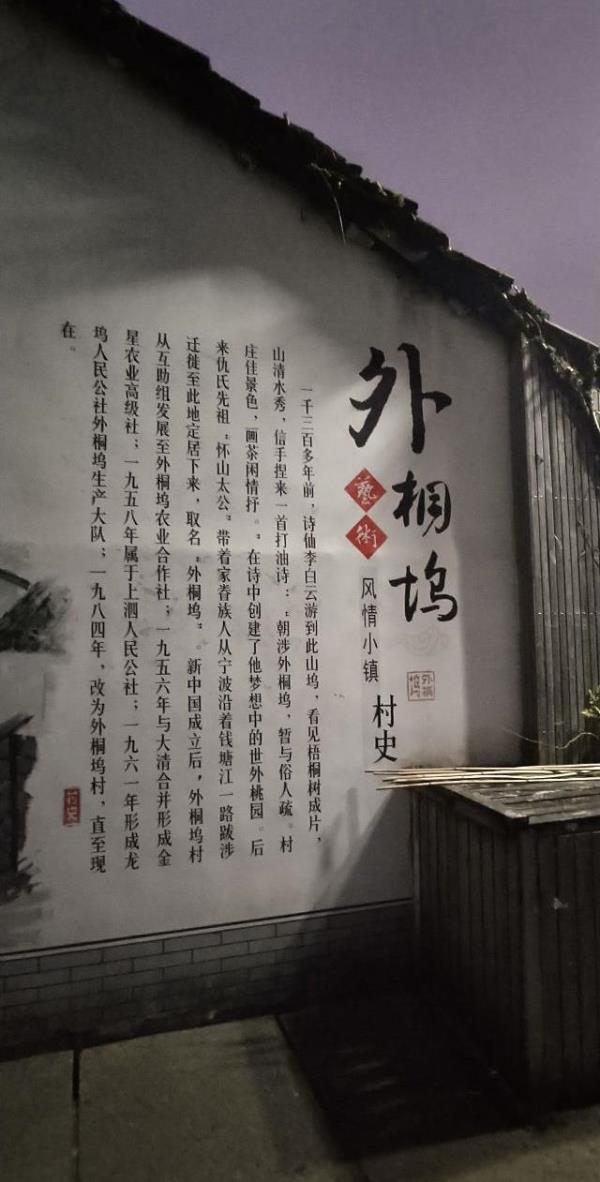 外桐坞
藝術
风情小镇
村史
一千三百多年前，诗仙李白云游到此山坞，看见梧桐树成片，
山清水秀，信手捏来一首打油诗：“朝涉外桐坞，暂与俗人疏。村
庄佳景色，画茶闲情抒。”在诗中创建了他梦想中的世外桃园。后
来仇氏先祖“怀山太公”带着家眷族人从宁波沿着钱塘江一路跋涉
迁徙至此地定居下来，取名“外桐坞”。新中国成立后，外桐坞村
从互助组发展至外桐坞农业合作社；一九五六年与大清合并形成金
星农业高级社；一九五八年属于上泗人民公社；一九六一年形成龙
坞人民公社外桐坞生产大队；一九八四年，改为外桐坞村，直至现
在。